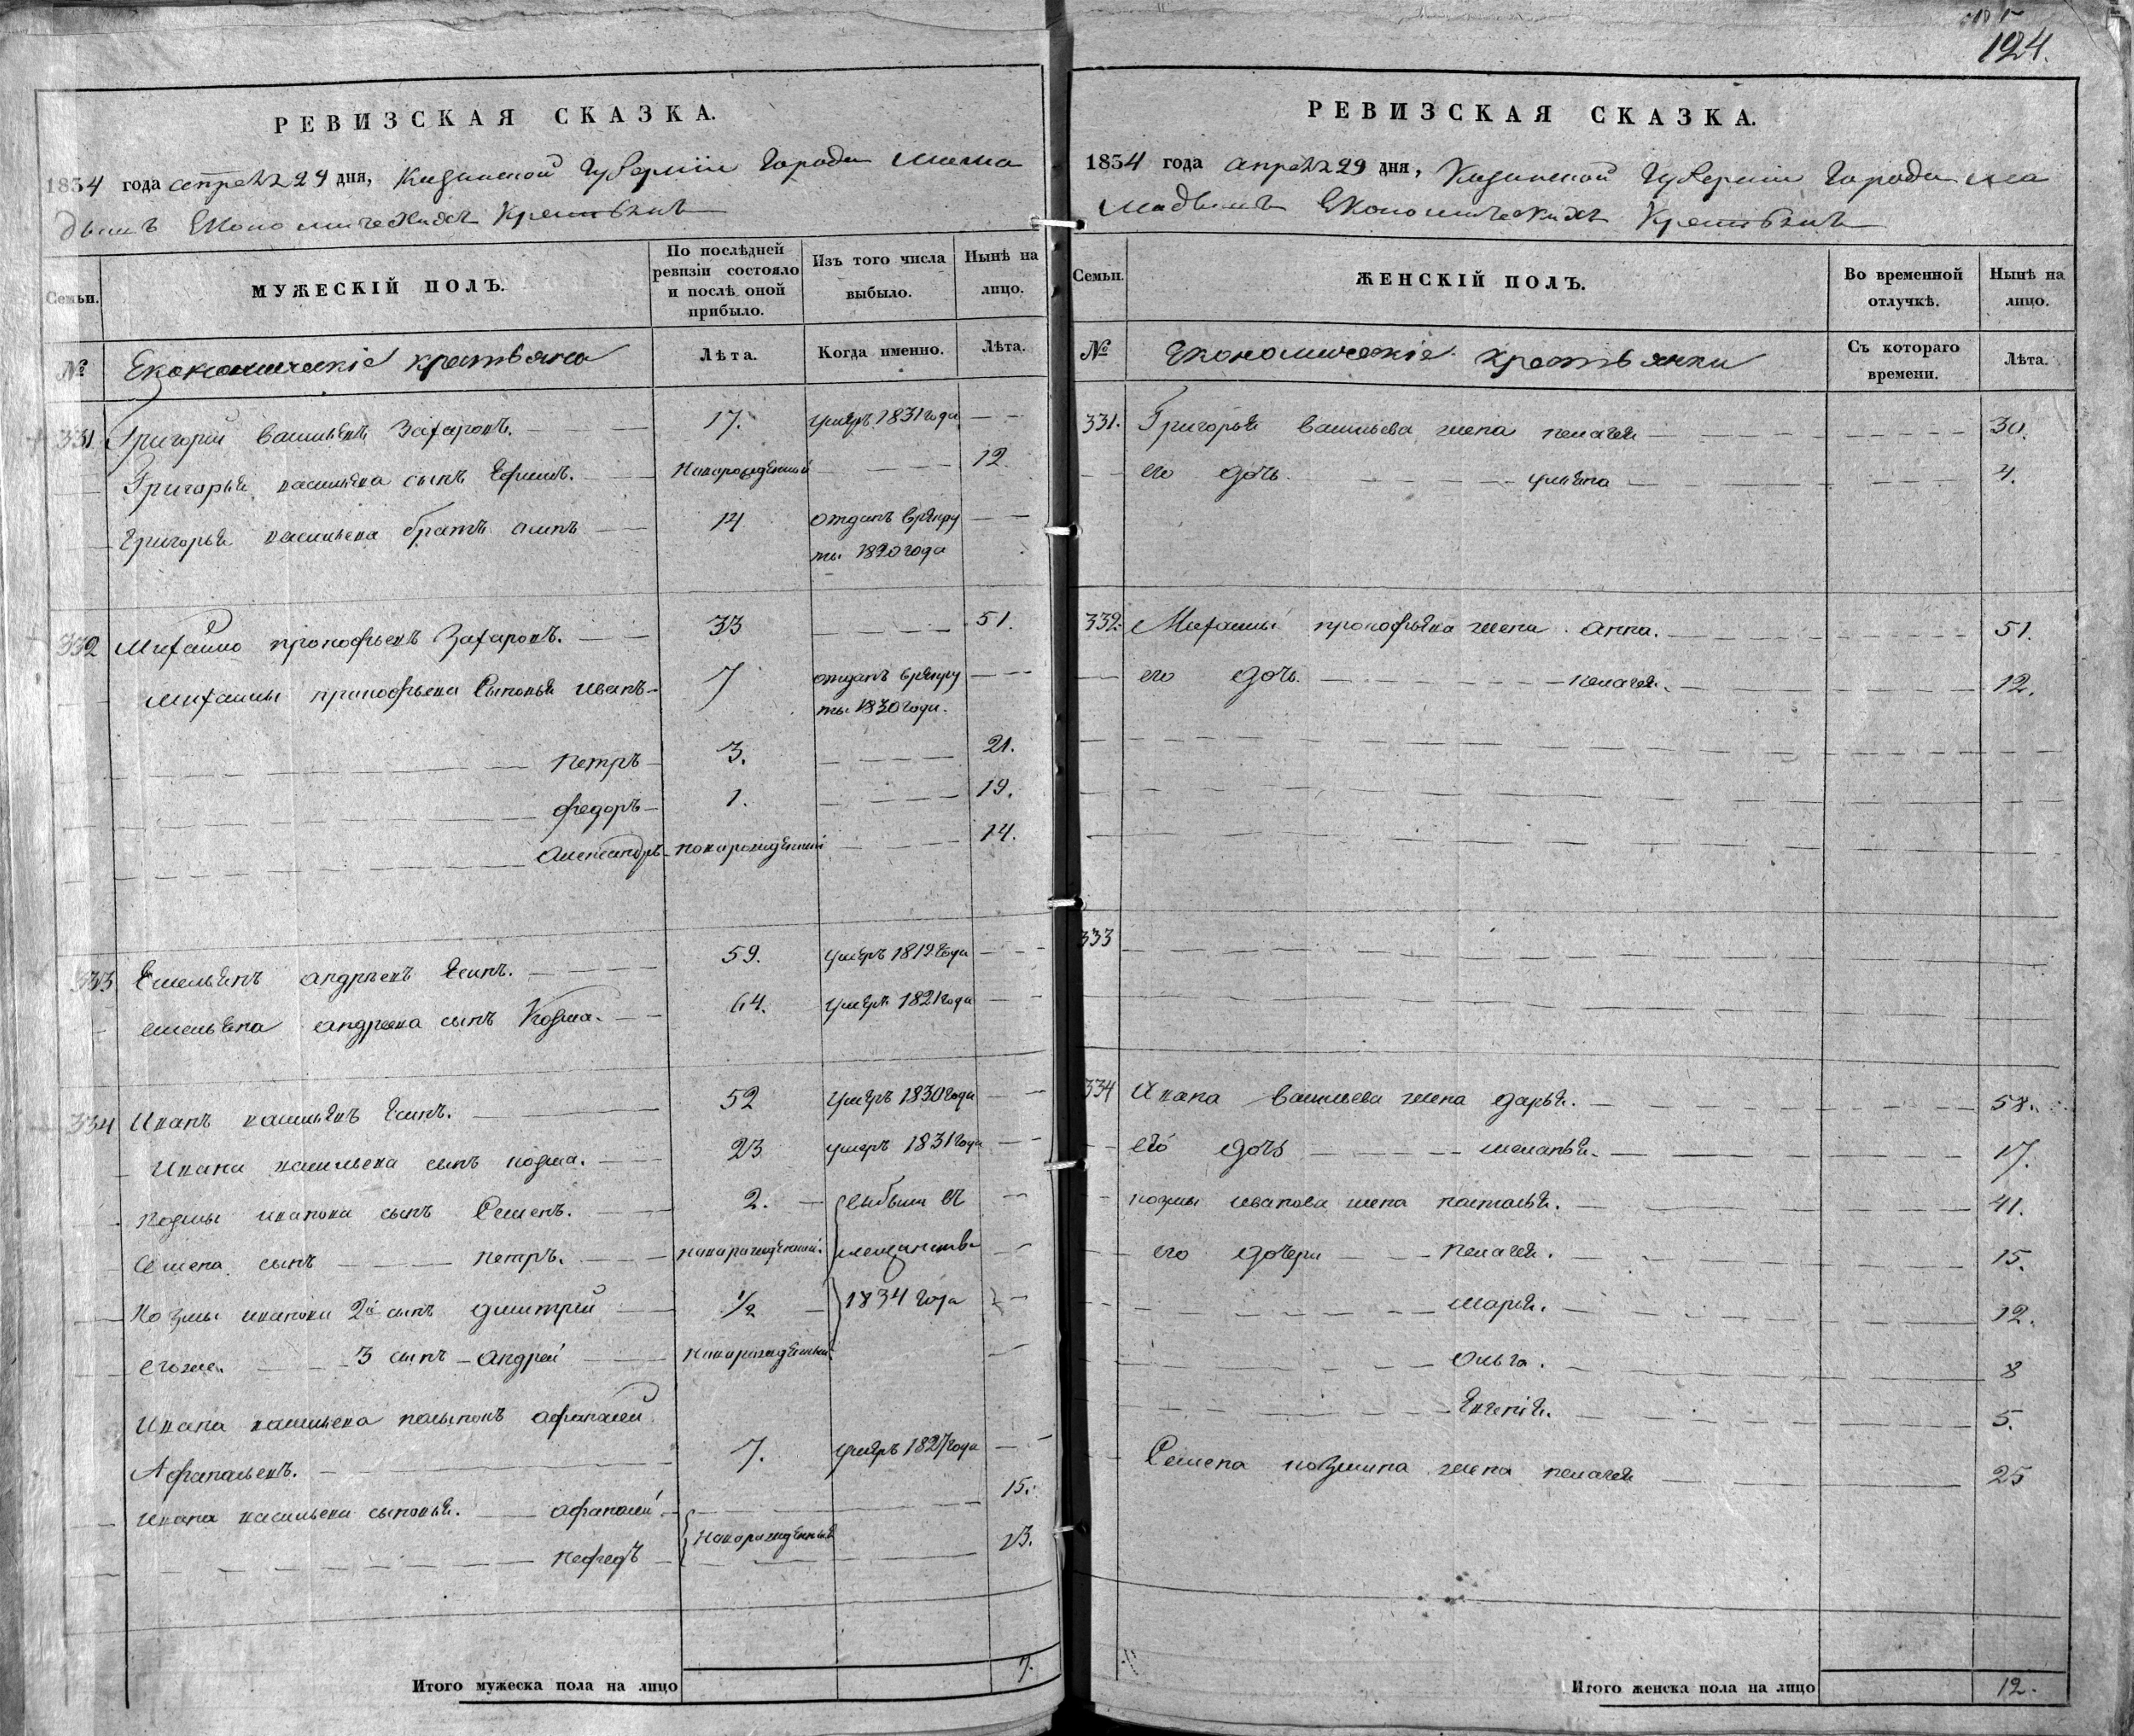 124.
РЕВИЗСКАЯ СКАЗКА.
1834 года апреля 29 дня, Казанской Губернии Города Мама
дышъ Економическихъ Крестьянъ
Семьи.
МУЖЕСКІЙ ПОЛЪ.
По послѣдней ревизіи состояло и послѣ оной прибыло.
Изъ того числа выбыло.
Нынѣ на лицо.
№
Економическіе крестьяна
Лѣта.
Когда именно.
Лѣта.
331 Григорей васильевъ Захаровъ. 17. умеръ 1831 года
Григорья васильева сынъ Ефимъ. новорожденной 12.
Григорья васильева братъ осипъ 14 отданъ врекру
ты 1820 года
332 Михайло прокофьевъ Захаровъ. 33 51.
михаилы прокофьева Сыновья иванъ 7 отданъ врекру
ты 1830 года.
петръ 3. 21.
федоръ 1. 19.
Александръ новорожденной 14.
333 Емельянъ андреевъ Есипъ. 59. умеръ 1819 года
емельяна андреева сынъ Козма. 64. умеръ 1821 года
334 Иванъ васильевъ Есипъ. 52 умеръ 1830 года
Ивана васильева сынъ козма. 23 умеръ 1831 года
козмы иванова сынъ Семенъ. 2. выбыли въ
Семена сынъ петръ. новорожденной. мещанство
козмы иванова 2й сынъ димитрей 1/2 1834 года
егоже 3 сынъ Андрей новорожденной
Ивана васильева пасынокъ афанасей
Афанасьевъ. 7. умеръ 1827 года
ивана васильева сыновья. афанасей 15.
новорожденныя
нефедъ 13.
Итого мужеска пола на лицо 7.
РЕВИЗСКАЯ СКАЗКА.
1834 года апреля 29 дня, Казанской Губернии Города ма
мадышъ Економическихъ Крестьянъ
Семьи.
ЖЕНСКІЙ ПОЛЪ.
Во временной отлучкѣ.
Нынѣ на лицо.
№
Економическіе крестьянки
Съ котораго времени.
Лѣта.
331. Григорья васильева жена пелагея 30.
его дочь ульяна 4.
332. Михаилы прокофьева жена Анна. 51.
его дочь. пелагея. 12.
333
334 Ивана васильева жена дарья. 58.
его дочь меланья. 17.
козмы иванова жена наталья. 41.
его дочери пелагея. 15.
марья. 12.
Ольга. 8
Евгенія. 5.
Семена козмина жена пелагея 25
Итого женска пола на лицо 12.